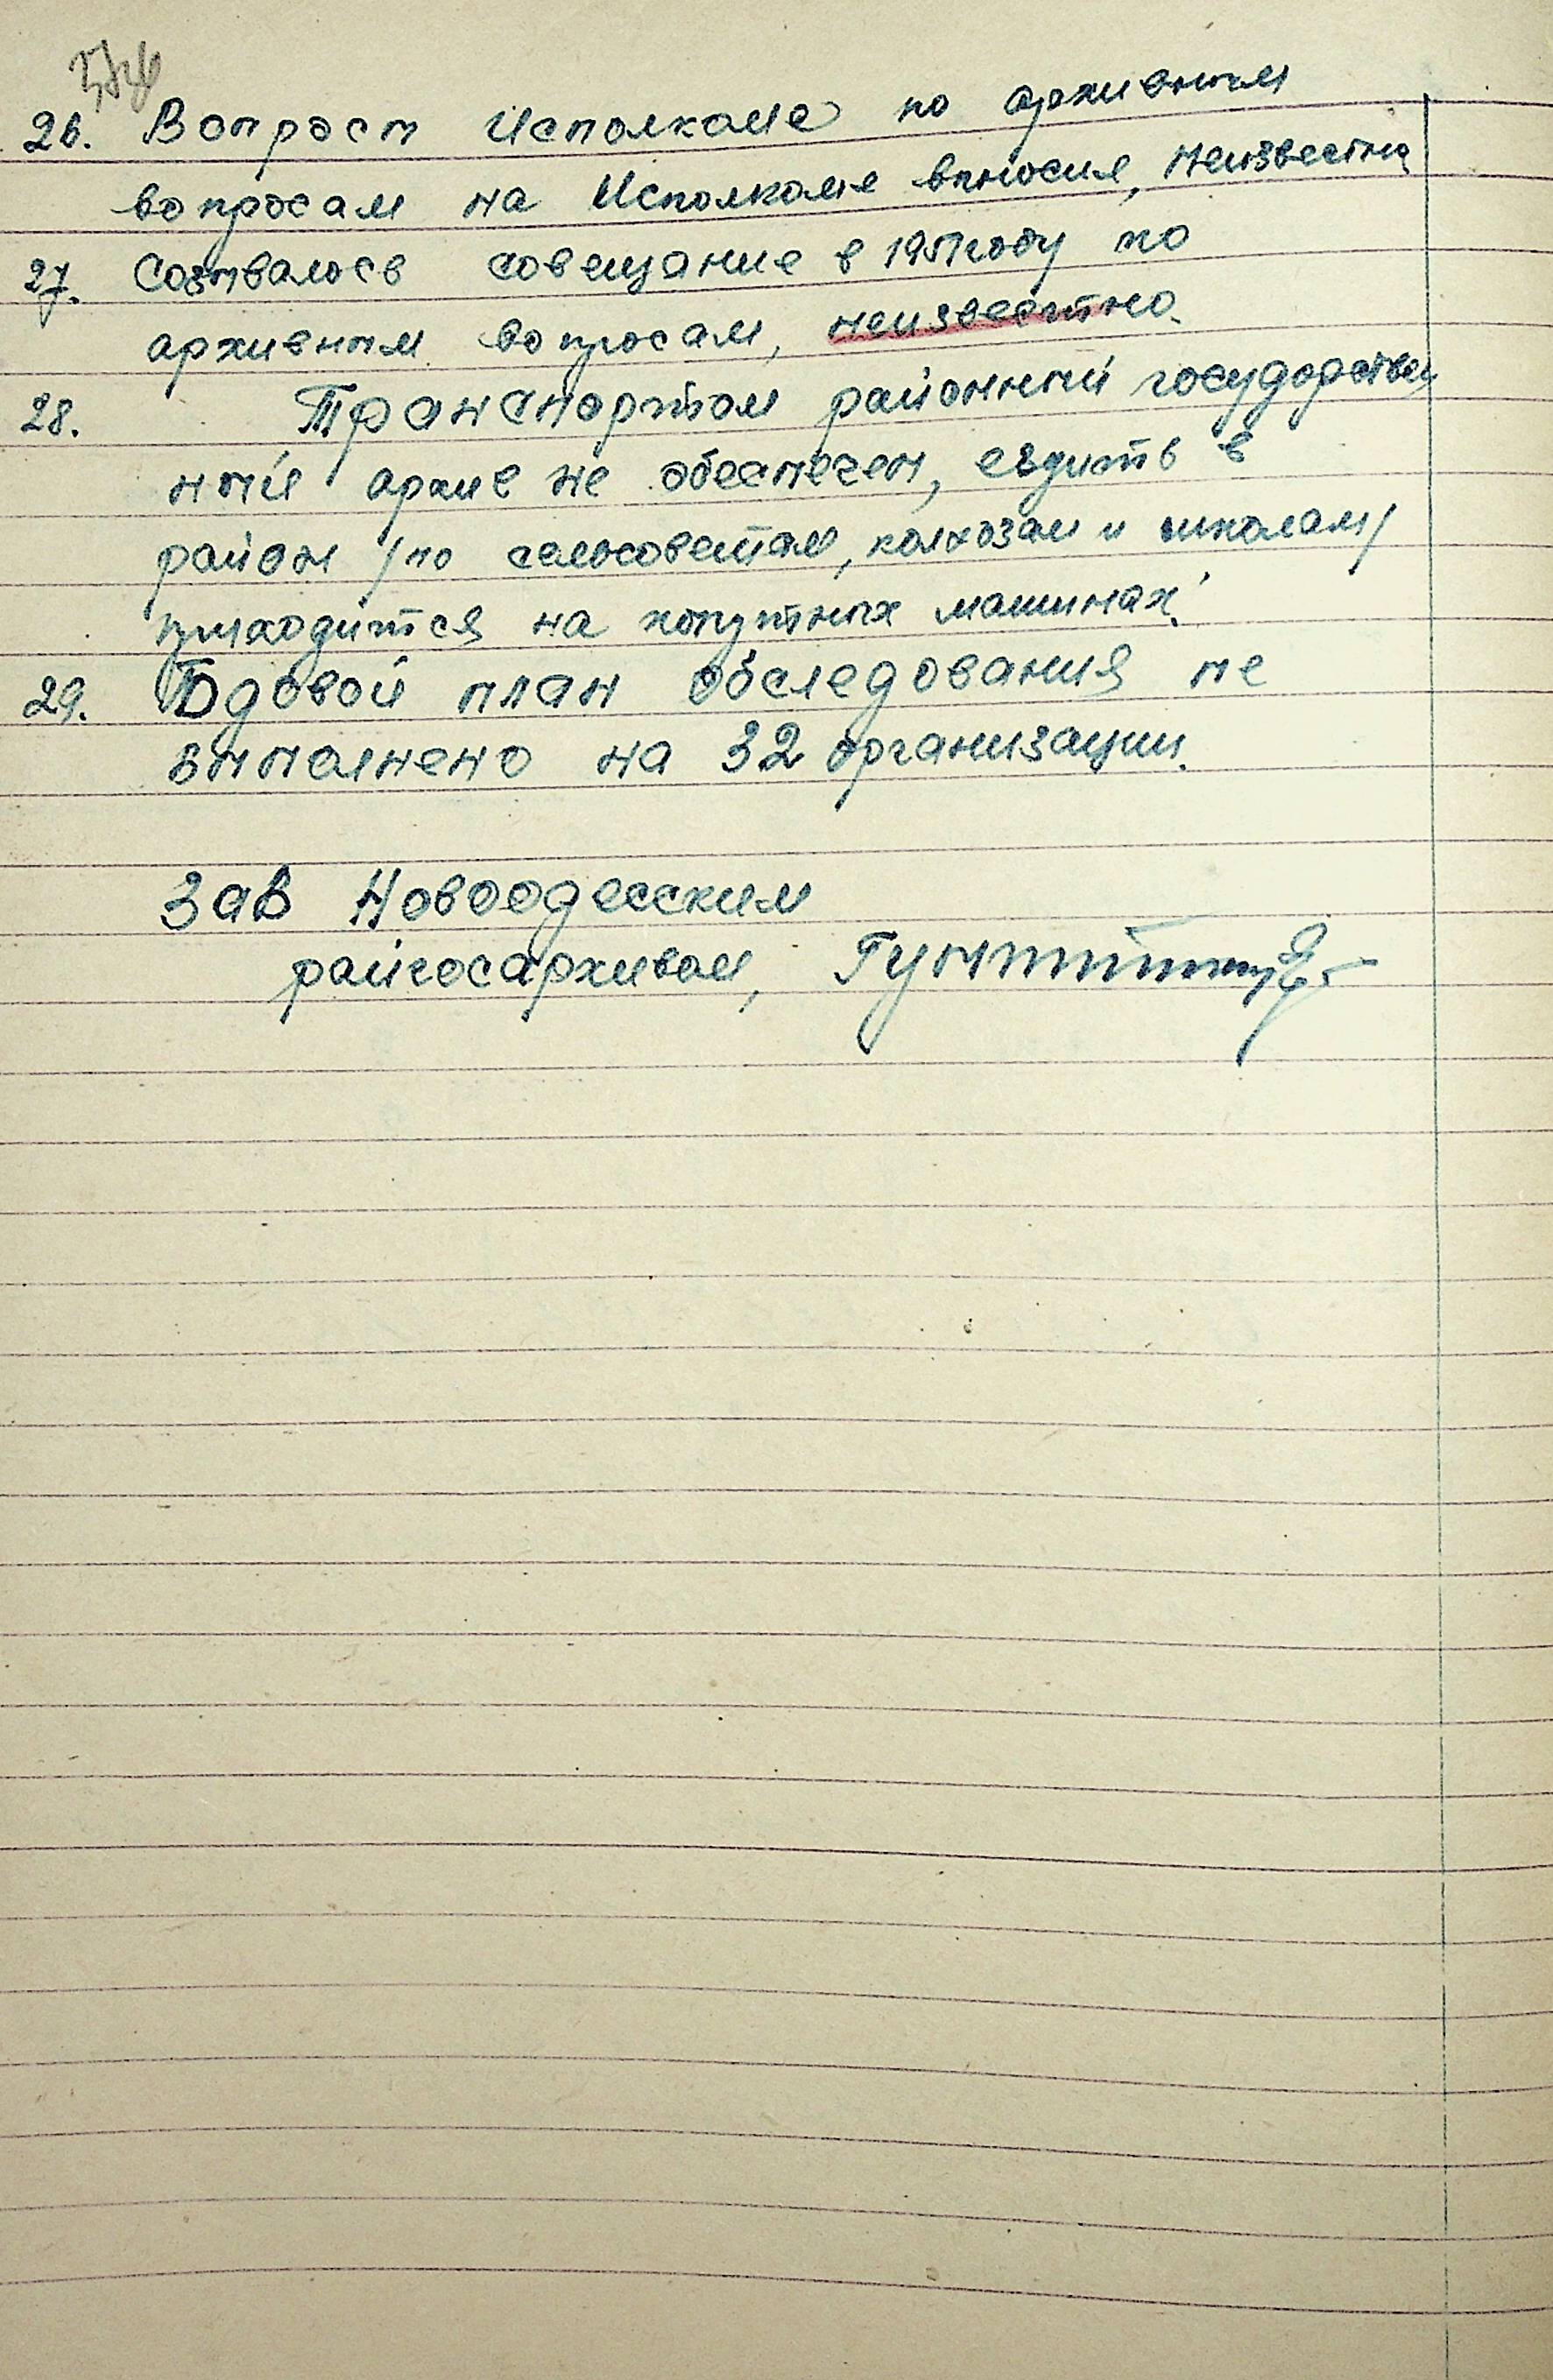 26. Вопросы Исполкоме по архивным
вопросам на Исполкоме вносил, неизвестно
27. Созывалось совещание в 1951году по
архивным вопросам, неизвестно.
28. Транспортом районный государствен
ный архив не обеспечен, ездить в
район /по сельсоветам, колхозам и школам/
приходится на попутных машинах.
29. Годовой план обследования не
выполнено на 32 организации.
Зав Новоодесским
райгосархивом,